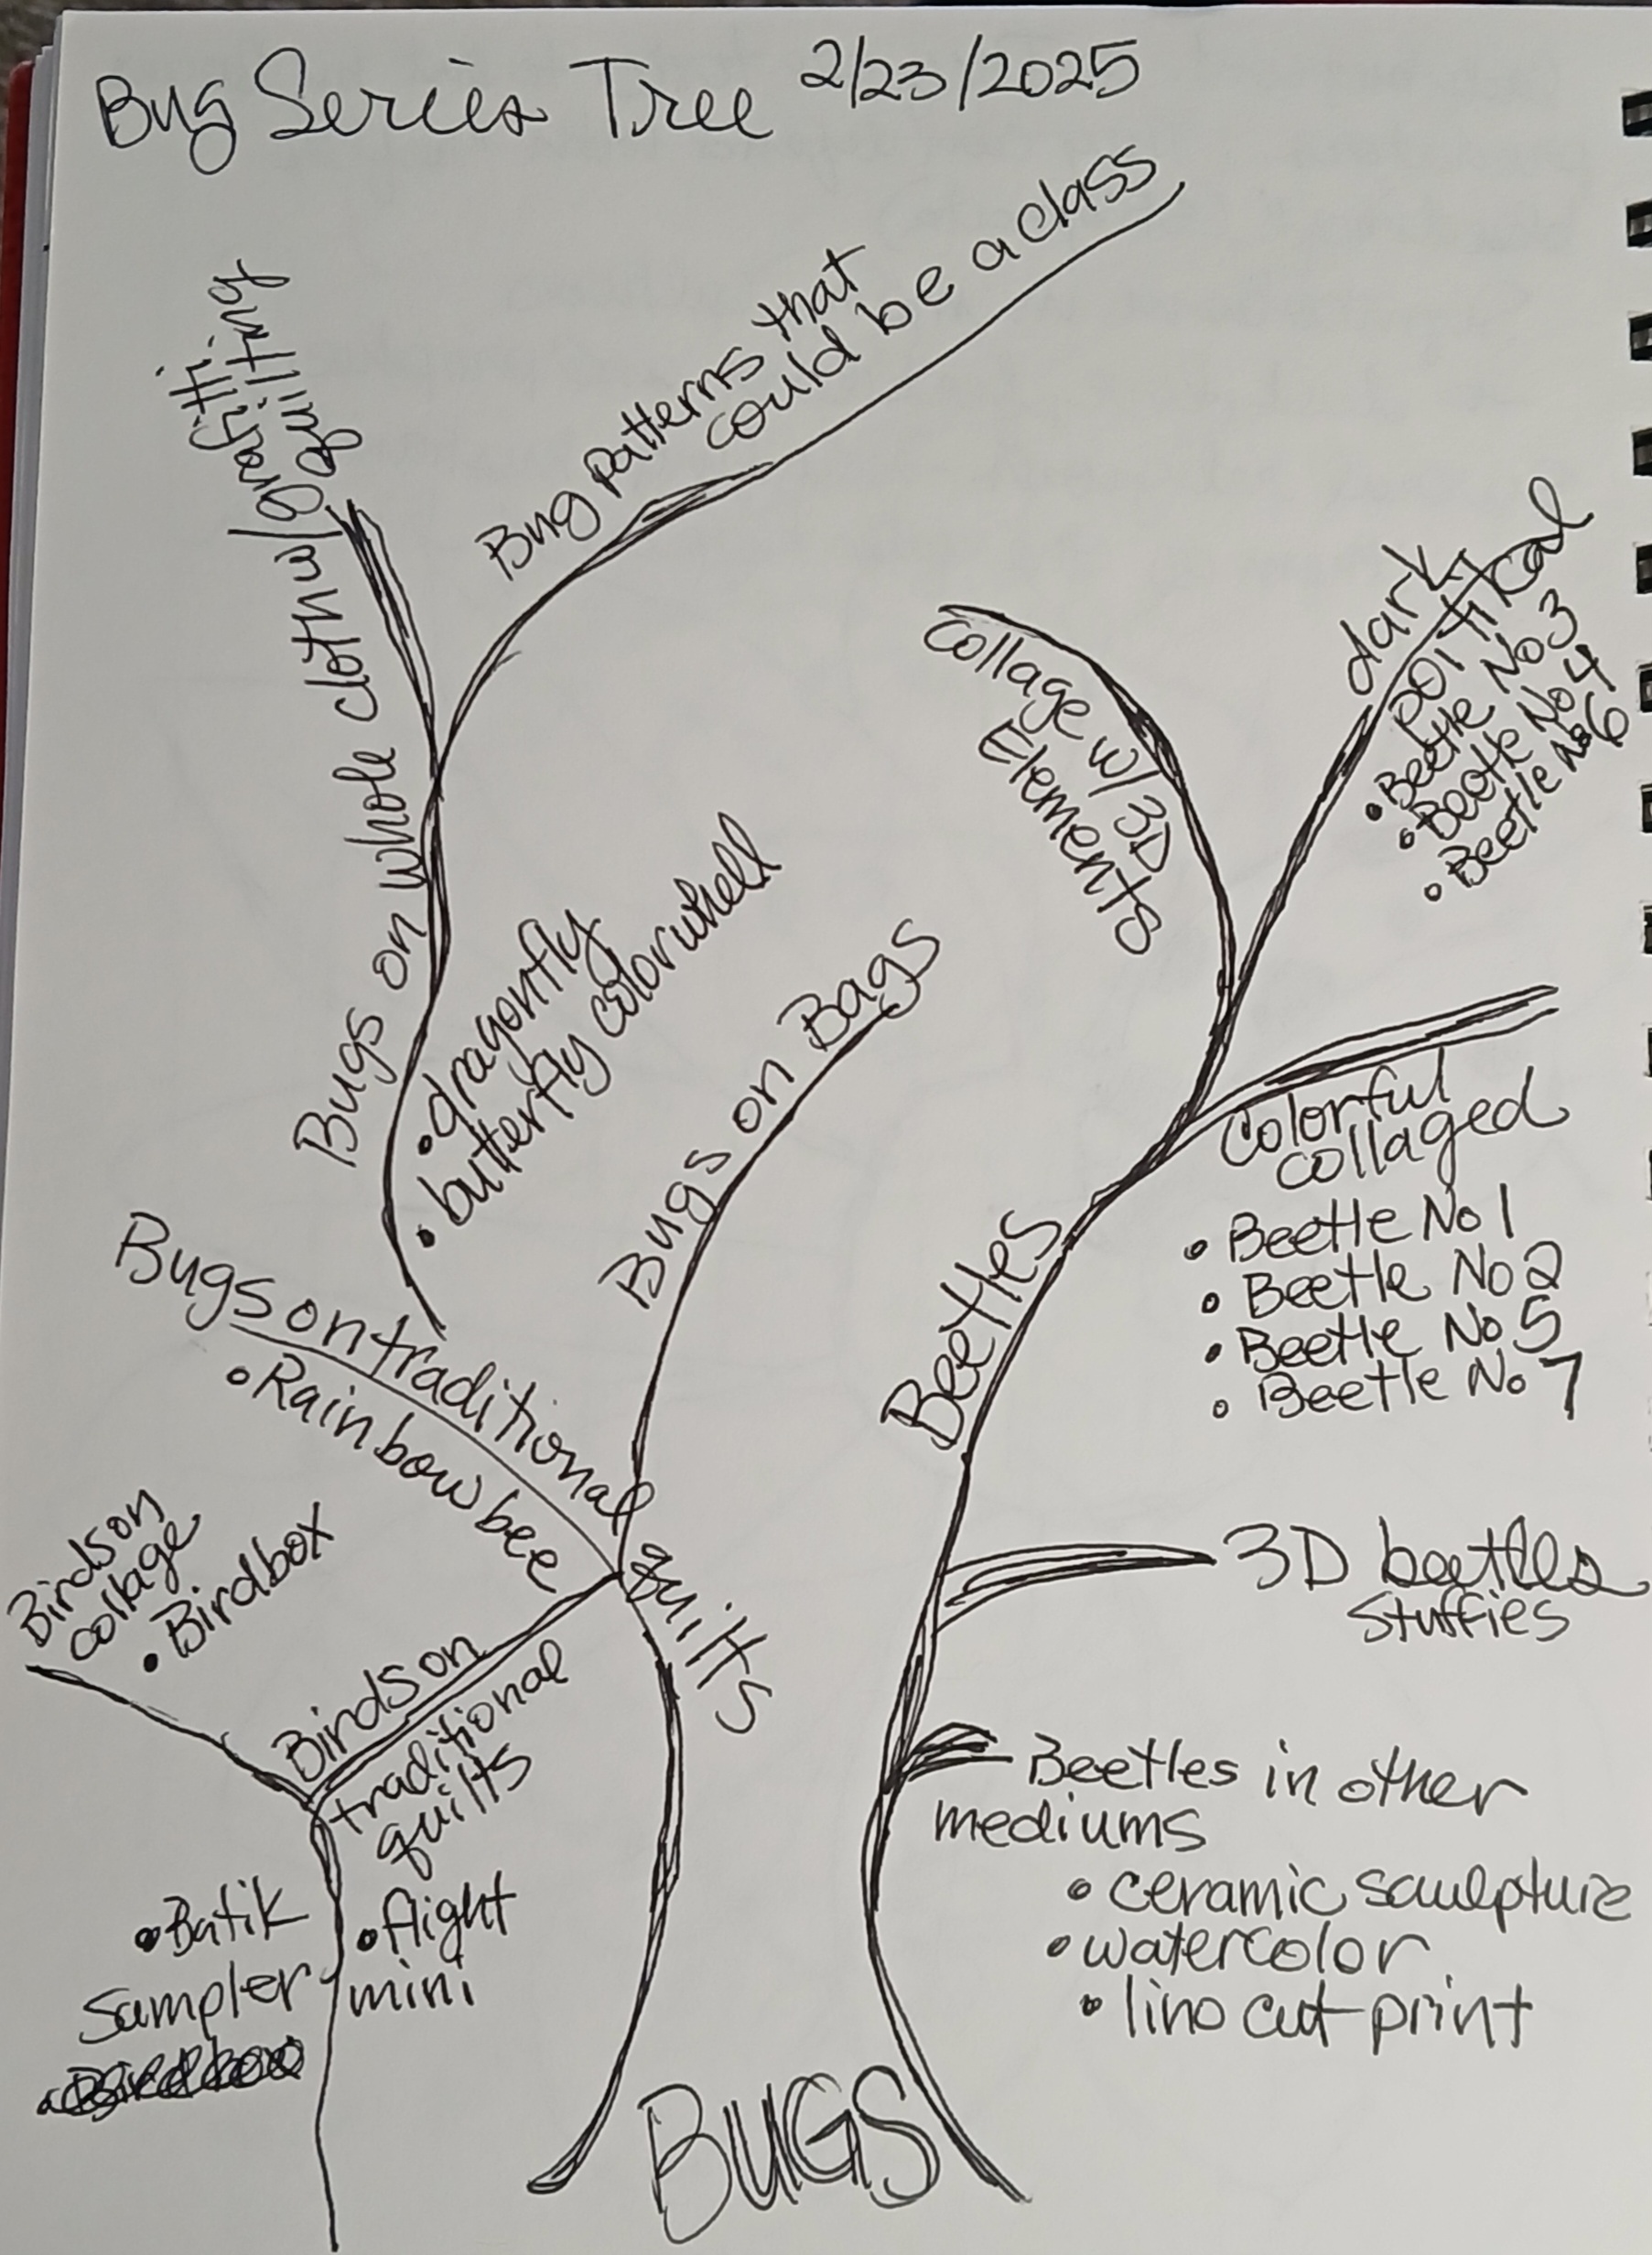 Bug Series Tree 2/23/2025
Bug Patterns that
could be a class
Bugs on whole cloth w/ graffiti
quilting
• dragonfly
• butterfly colorwheel
Bugs on Bags
Collage w/ 3D
Elements
dark
political
• Beetle No 3
• Beetle No 4
• Beetle No 6
Colorful
collaged
• Beetle No 1
• Beetle No 2
• Beetle No 5
• Beetle No 7
Beetles
Bugs on traditional quilts
• Rainbow bee
Birds on
collage
• Birdbox
Birds on
traditional
quilts
• Batik
Sampler
• flight
mini
3D beetles
stuffies
Beetles in other
mediums
• ceramic saulpture
• watercolor
• lino cut print
BUGS